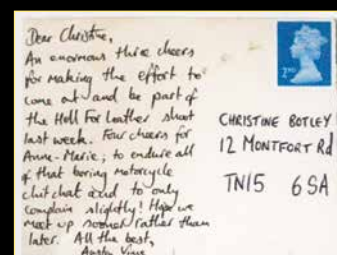 Dear Christine,
An enormous three cheers
for making the effort to
come out and be part of
the Hell For Leather shoot
last week. Four cheers for
Anne-Marie; to endure all
of that boring motorcycle
chit chat and to only
complain slightly! Hope we
meet up sooner rather than
later. All the best,
2nd
CHRISTINE BOTLEY
12 MONTFORT Rd
TN15 6SA